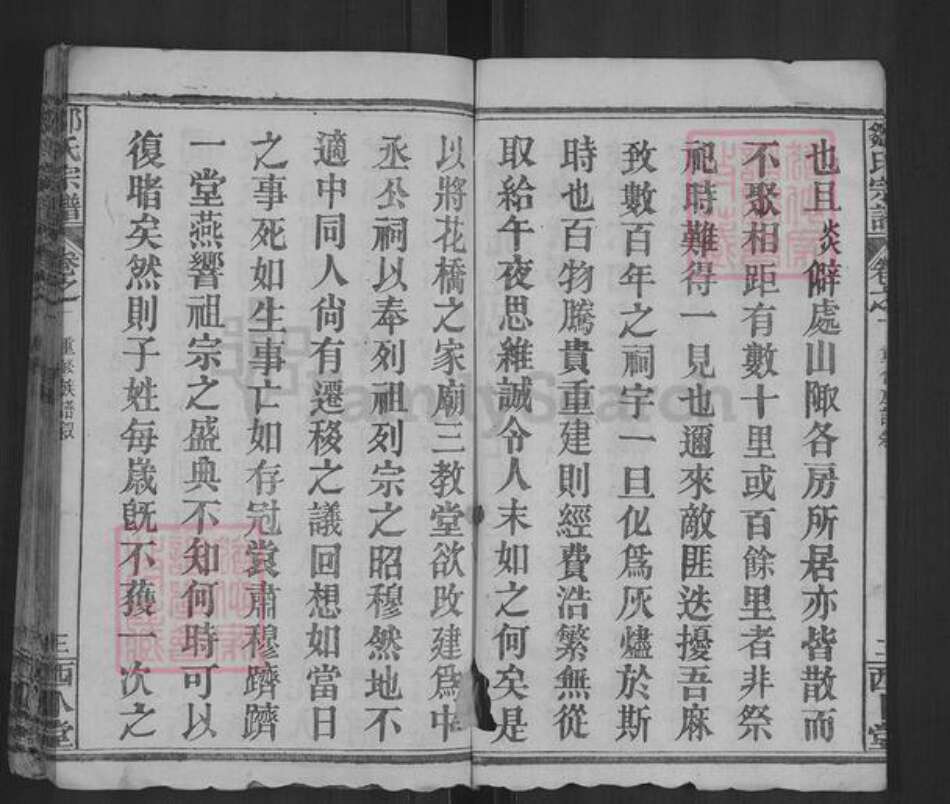 也且⿰火炎僻處山陬各房所居亦皆散而
不聚相距有數十里或百餘里者非祭
祀時難得一見也邇來敵匪迭擾吾麻
致數百年之祠宇一旦化爲灰燼於斯
時也百物騰貴重建則經費浩繁無從
取給午夜思維誠令人末如之何矣是
以將花橋之家廟三教堂欲改建爲中
丞公祠以奉列祖列宗之昭穆然地不
適中同人尙有遷移之議回想如當日
之事死如生事亡如存冠裳肅穆躋躋
一堂燕響祖宗之盛典不知何時可以
復睹矣然則子姓每歲既不獲一次之
鄒氏宗譜
卷之一
重修族譜叙
三